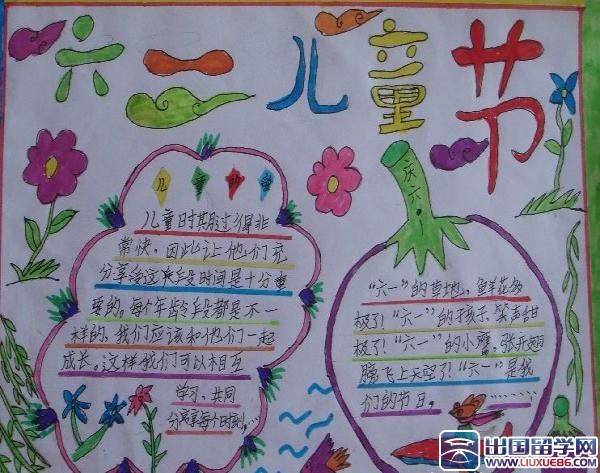 六一儿童节
儿童时节
儿童时期过得非
常快，因此让他们充
分享受这段时间是十分重
要的。每个年龄段都是不一
样的，我们应该和他们一起
成长。这样我们可以相互
学习、共同
分享每个时刻……
庆六一
“六一”的草地，鲜花多
极了！“六一”的孩子，笑声甜
极了！“六一”的小鹰，张开翅
膀飞上天空了！“六一”是我
们的节日。…………
出国留学网
WWW.LIUXUE86.COM